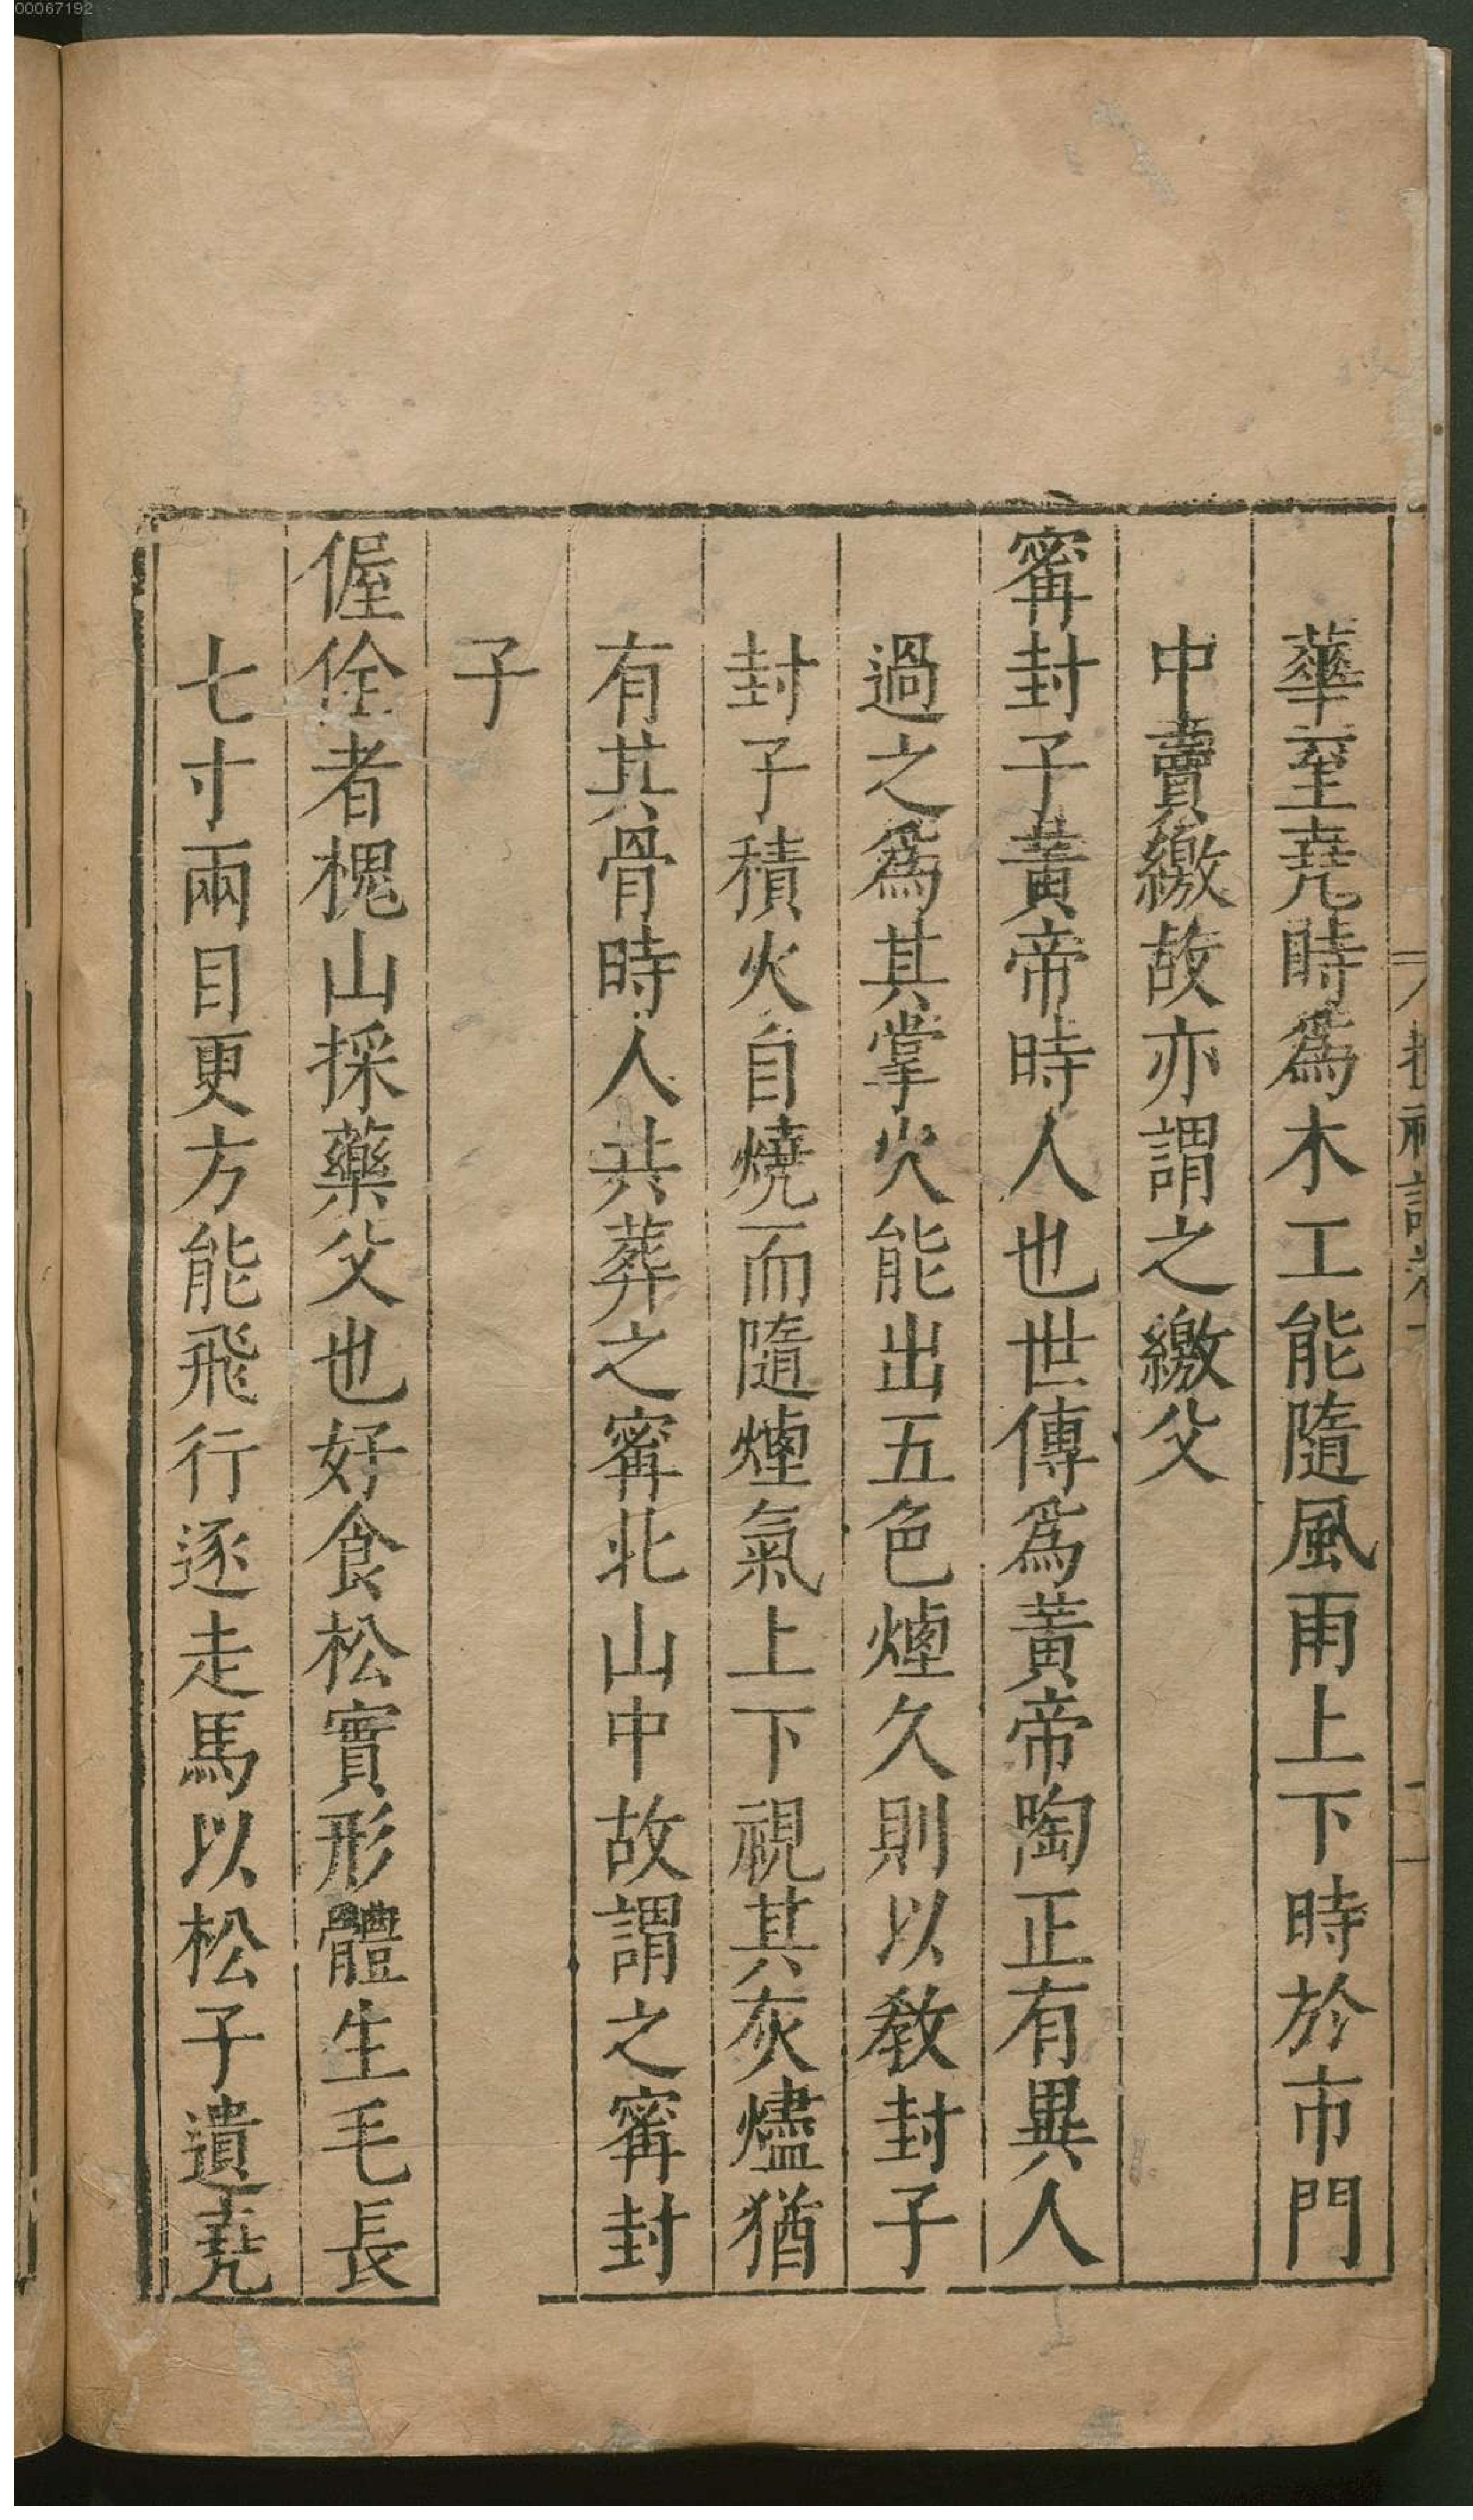 00067192
華至堯時爲木工能隨風雨上下時於市門
中賣繳故亦謂之繳父
寗封子黃帝時人也世傳爲黃帝陶正有異人
過之爲其掌火能出五色煙久則以敎封子
封子積火自燒而隨煙氣上下視其灰燼猶
有其骨時人共葬之寗北山中故謂之寗封
子
偓佺者槐山採藥父也好食松實形體生毛長
七寸兩目更方能飛行逐走馬以松子遺堯